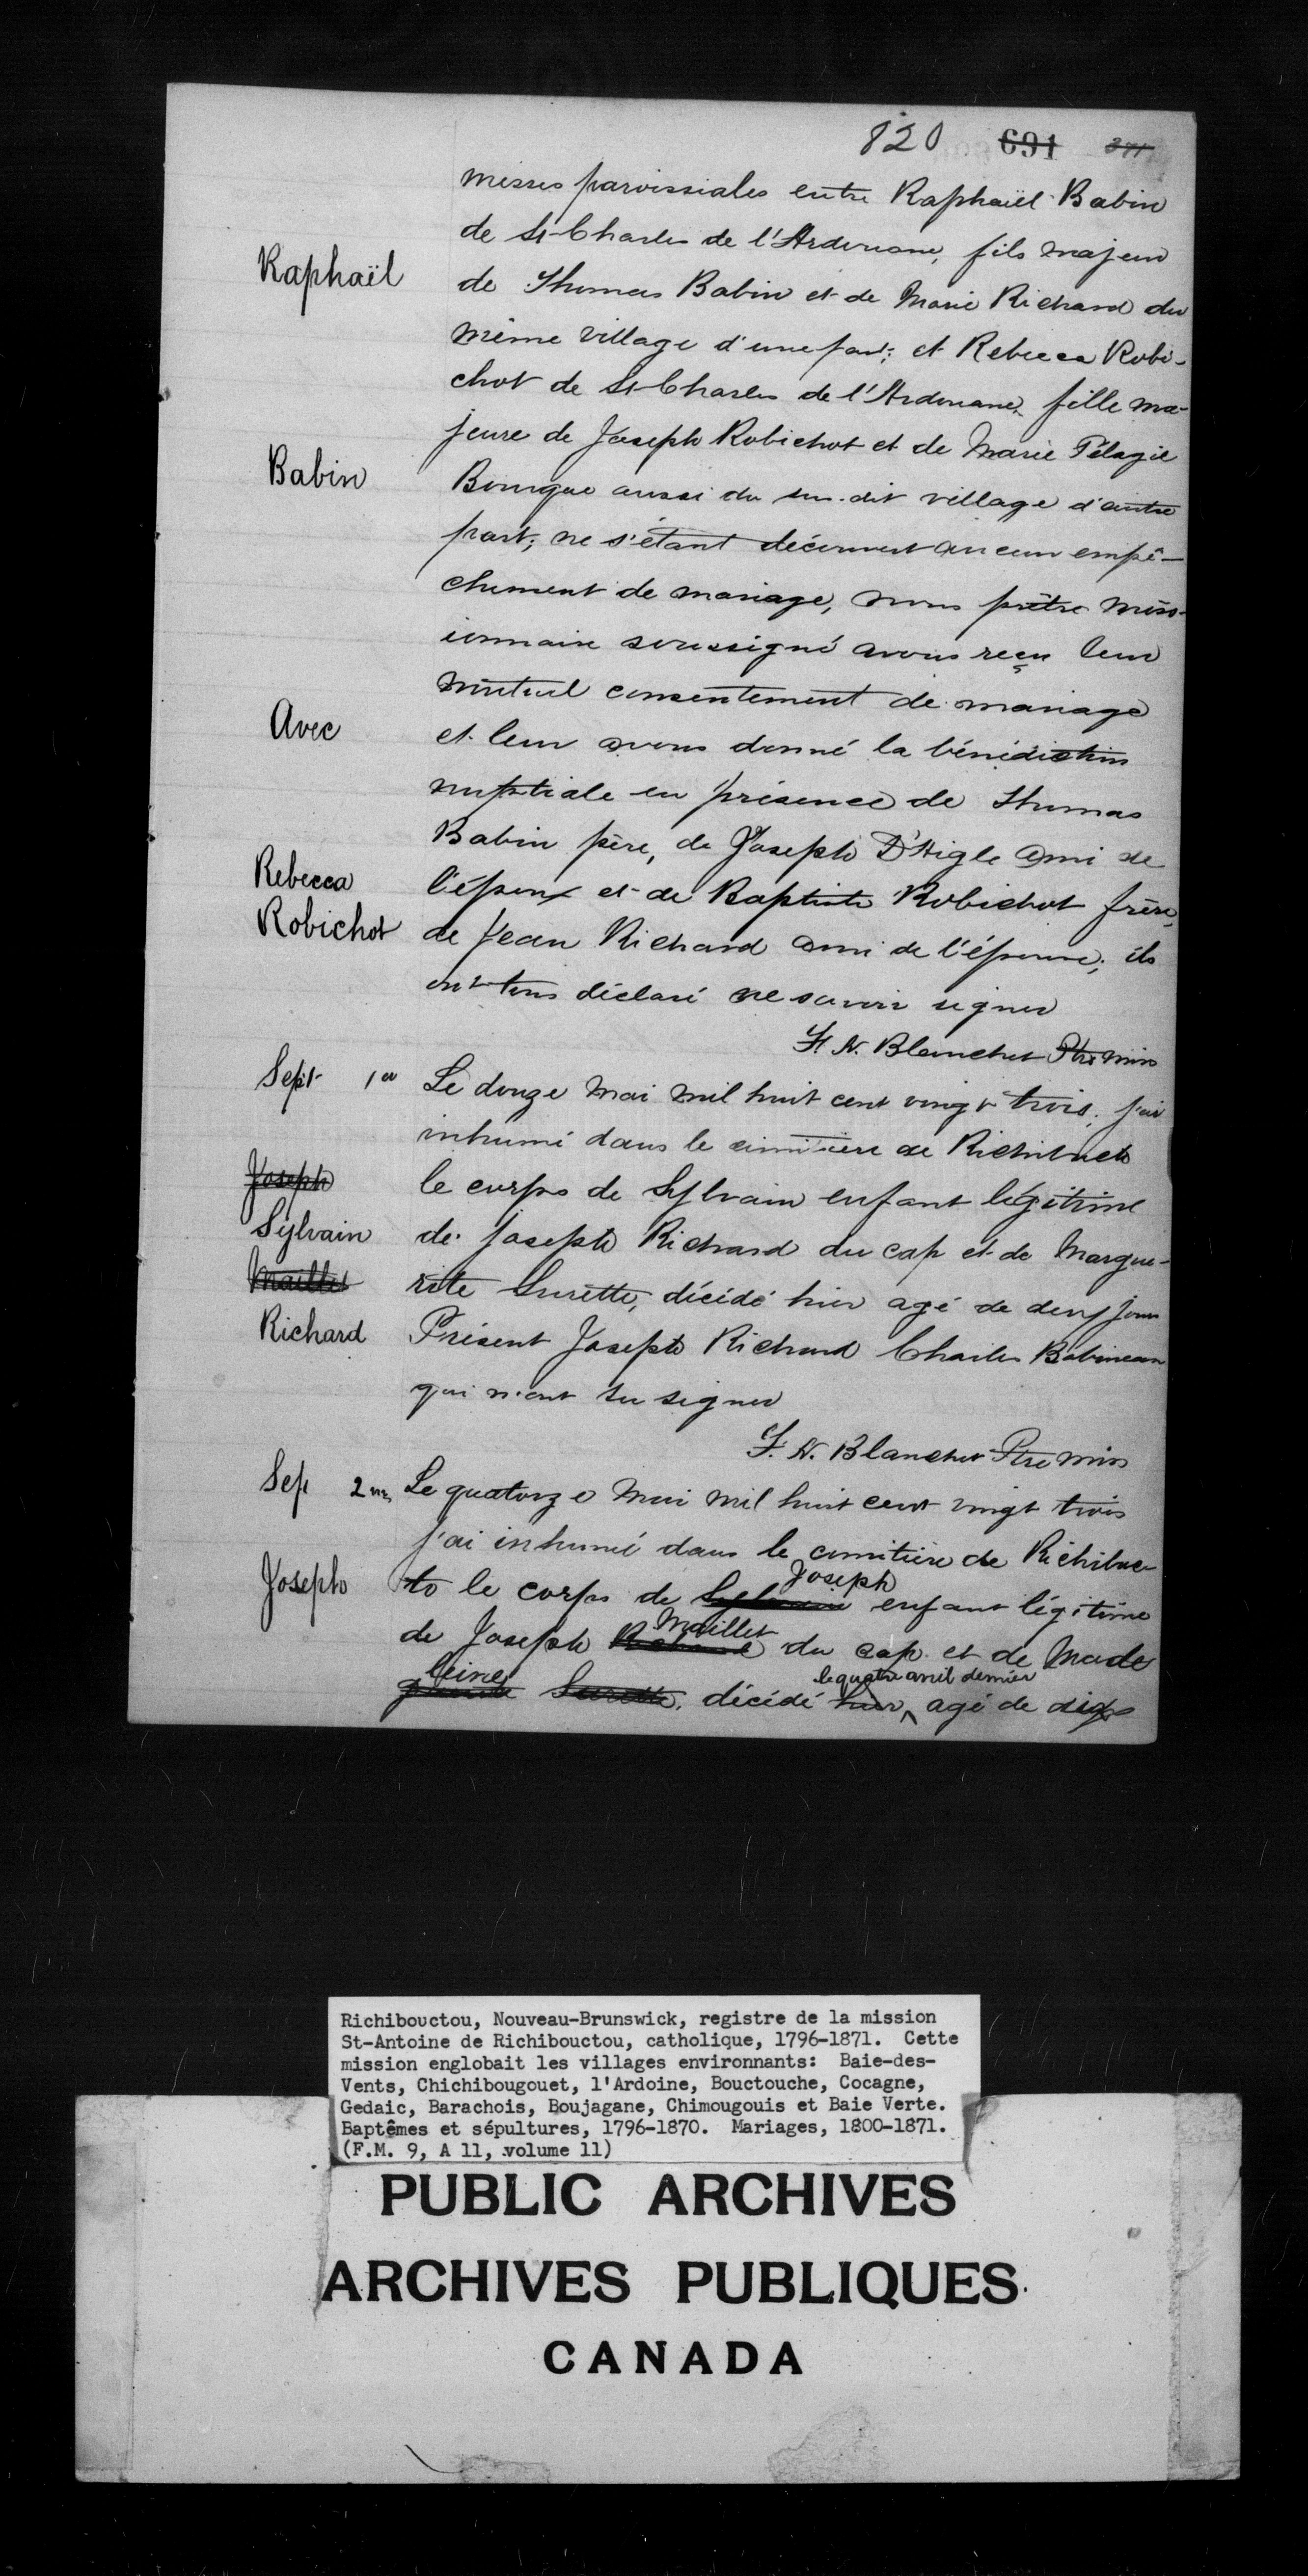 820 691 391
messes paroissiales entre Raphaël Babin
de St-Charles de l'Ardouane, fils majeur
Raphaël
de Thomas Babin et de Marie Richard du
même village d'une part; et Rebecca Robi-
chot de St-Charles de l'Ardouane, fille ma-
jeure de Joseph Robichot et de Marie Pélagie
Babin
Bourque aussi du sus-dit village d'autre
part; ne s'étant découvert aucun empê-
chement de mariage, nous prêtre miss-
ionnaire soussigné avons reçu leur
mutuel consentement de mariage
Avec
et leur avons donné la bénédiction
nuptiale en présence de Thomas
Babin père, de Joseph D'Aigle ami de
Rebecca
l'époux et de Baptiste Robichot frère,
Robichot
de Jean Richard ami de l'épouse; ils
ont tous déclaré ne savoir signer
F. N. Blanchet Ptre miss
Sept 1er
Le douze mai mil huit cent vingt trois, j'ai
inhumé dans le cimitière de Richibucto
Joseph
le corps de Sylvain enfant légitime
Sylvain
de Joseph Richard du cap et de Margue-
Maillet
rite Surette, décédé hier agé de deux jours
Richard
Présent Joseph Richard Charles Babineau
qui n'ont su signer
F. N. Blanchet Ptre miss
Sep 2me
Le quatorze mai mil huit cent vingt trois
j'ai inhumé dans le cimitière de Richibuc-
Joseph
Joseph
to le corps de Sylvain enfant légitime
Maillet
de Joseph Richard du cap et de Made
leine le quatre avril dernier
Surette, décédé hier, agé de dix
Richibouctou, Nouveau-Brunswick, registre de la mission
St-Antoine de Richibouctou, catholique, 1796-1871. Cette
mission englobait les villages environnants: Baie-des-
Vents, Chichibougouet, l'Ardoine, Bouctouche, Cocagne,
Gedaic, Barachois, Boujagane, Chimougouis et Baie Verte.
Baptêmes et sépultures, 1796-1870. Mariages, 1800-1871.
(F.M. 9, A 11, volume 11)
PUBLIC ARCHIVES
ARCHIVES PUBLIQUES
CANADA